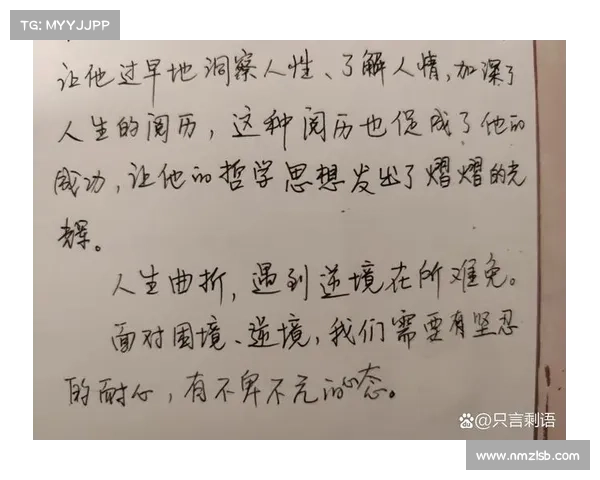 TG: MYYJJPP
让他过早地洞察人性、了解人情,加深了
人生的阅历，这种阅历也促成了他的
成功,让他的哲学思想发出了熠熠的光
辉。
人生曲折，遇到逆境在所难免。
面对困境、逆境,我们需要有坚忍
的耐心，有不卑不亢的心态。
只言剩语
www.nmzlsb.com